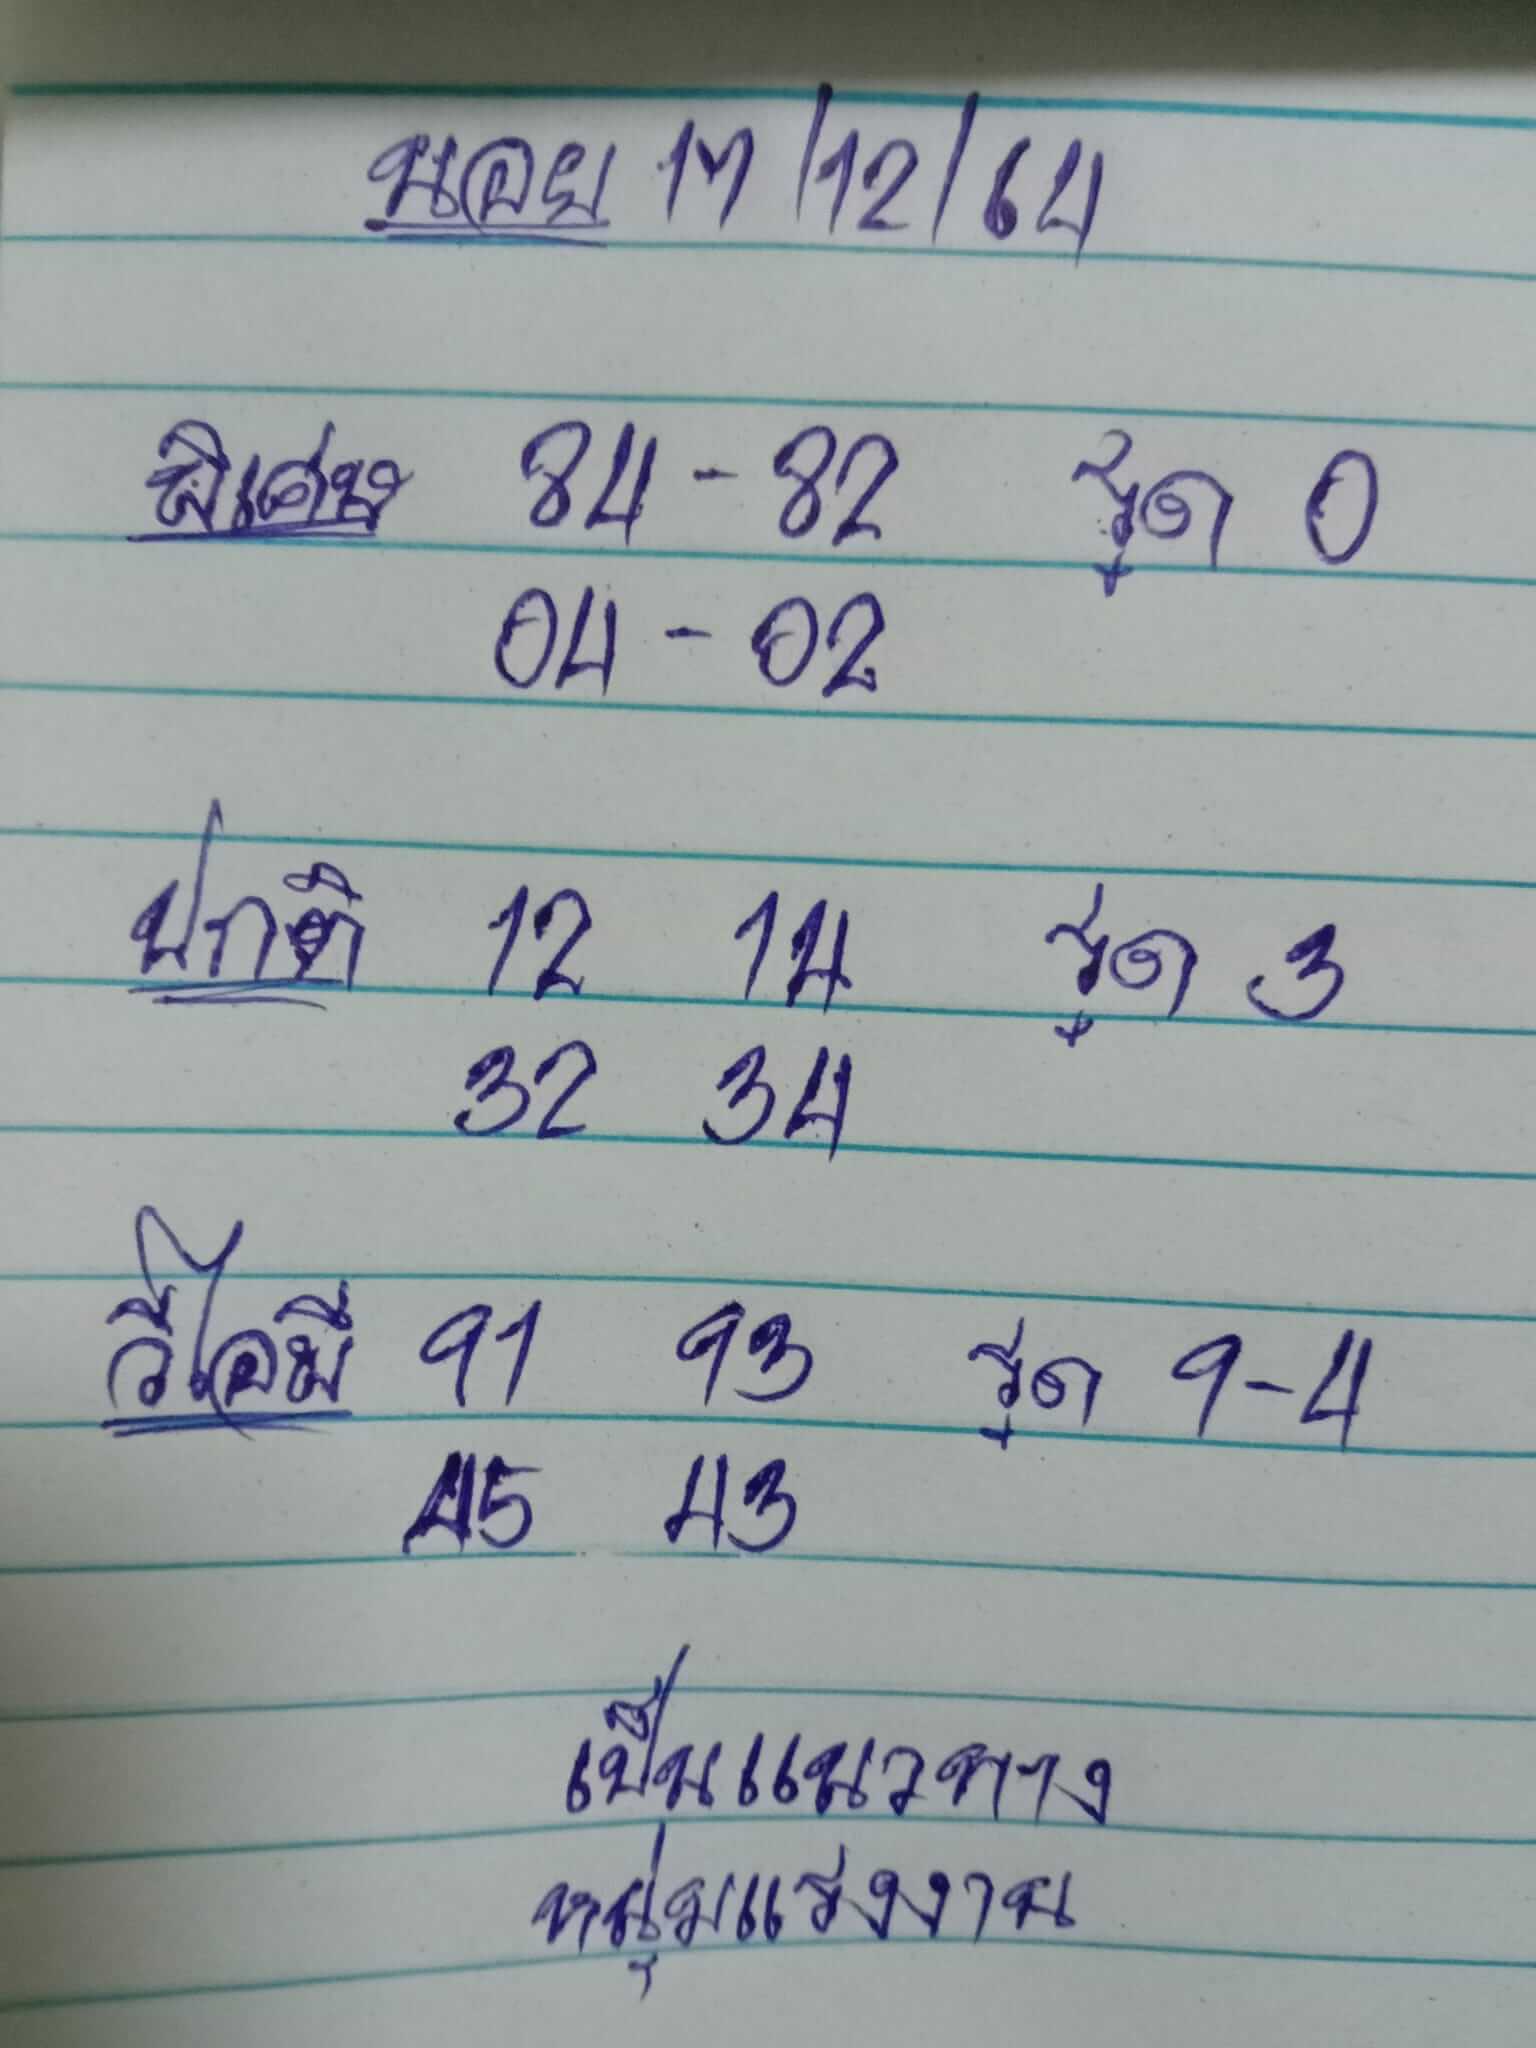 นอย 17/12/64
พิเศษ 84 - 82 รูด 0
04 - 02
ปกติ 12 14 รูด 3
32 34
วีไอพี 91 93 รูด 9-4
45 43
เป็นแนวทาง
หนุ่มแรงงาน